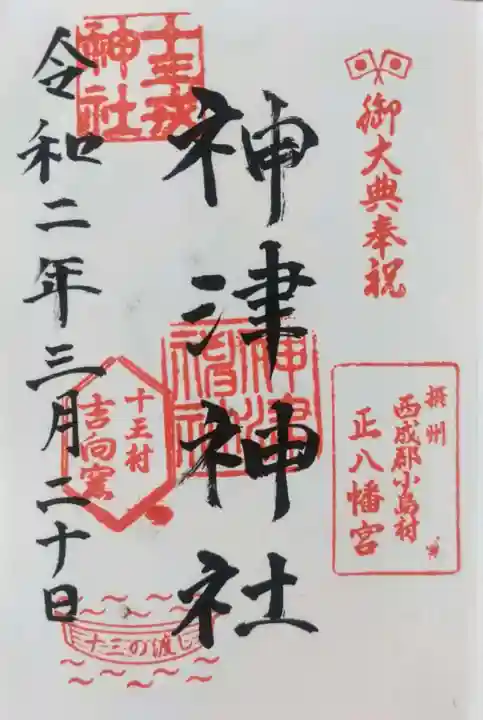 御大典奉祝
摂州
西成郡小島村
正八幡宮
神津神社
神津神社
十三戎神社
十王村
吉向窯
十三の渡し
令和二年三月二十日